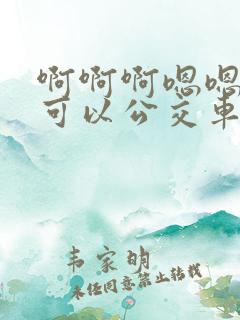 啊啊啊嗯嗯
可以公交車
韦家明
未经同意禁止转载